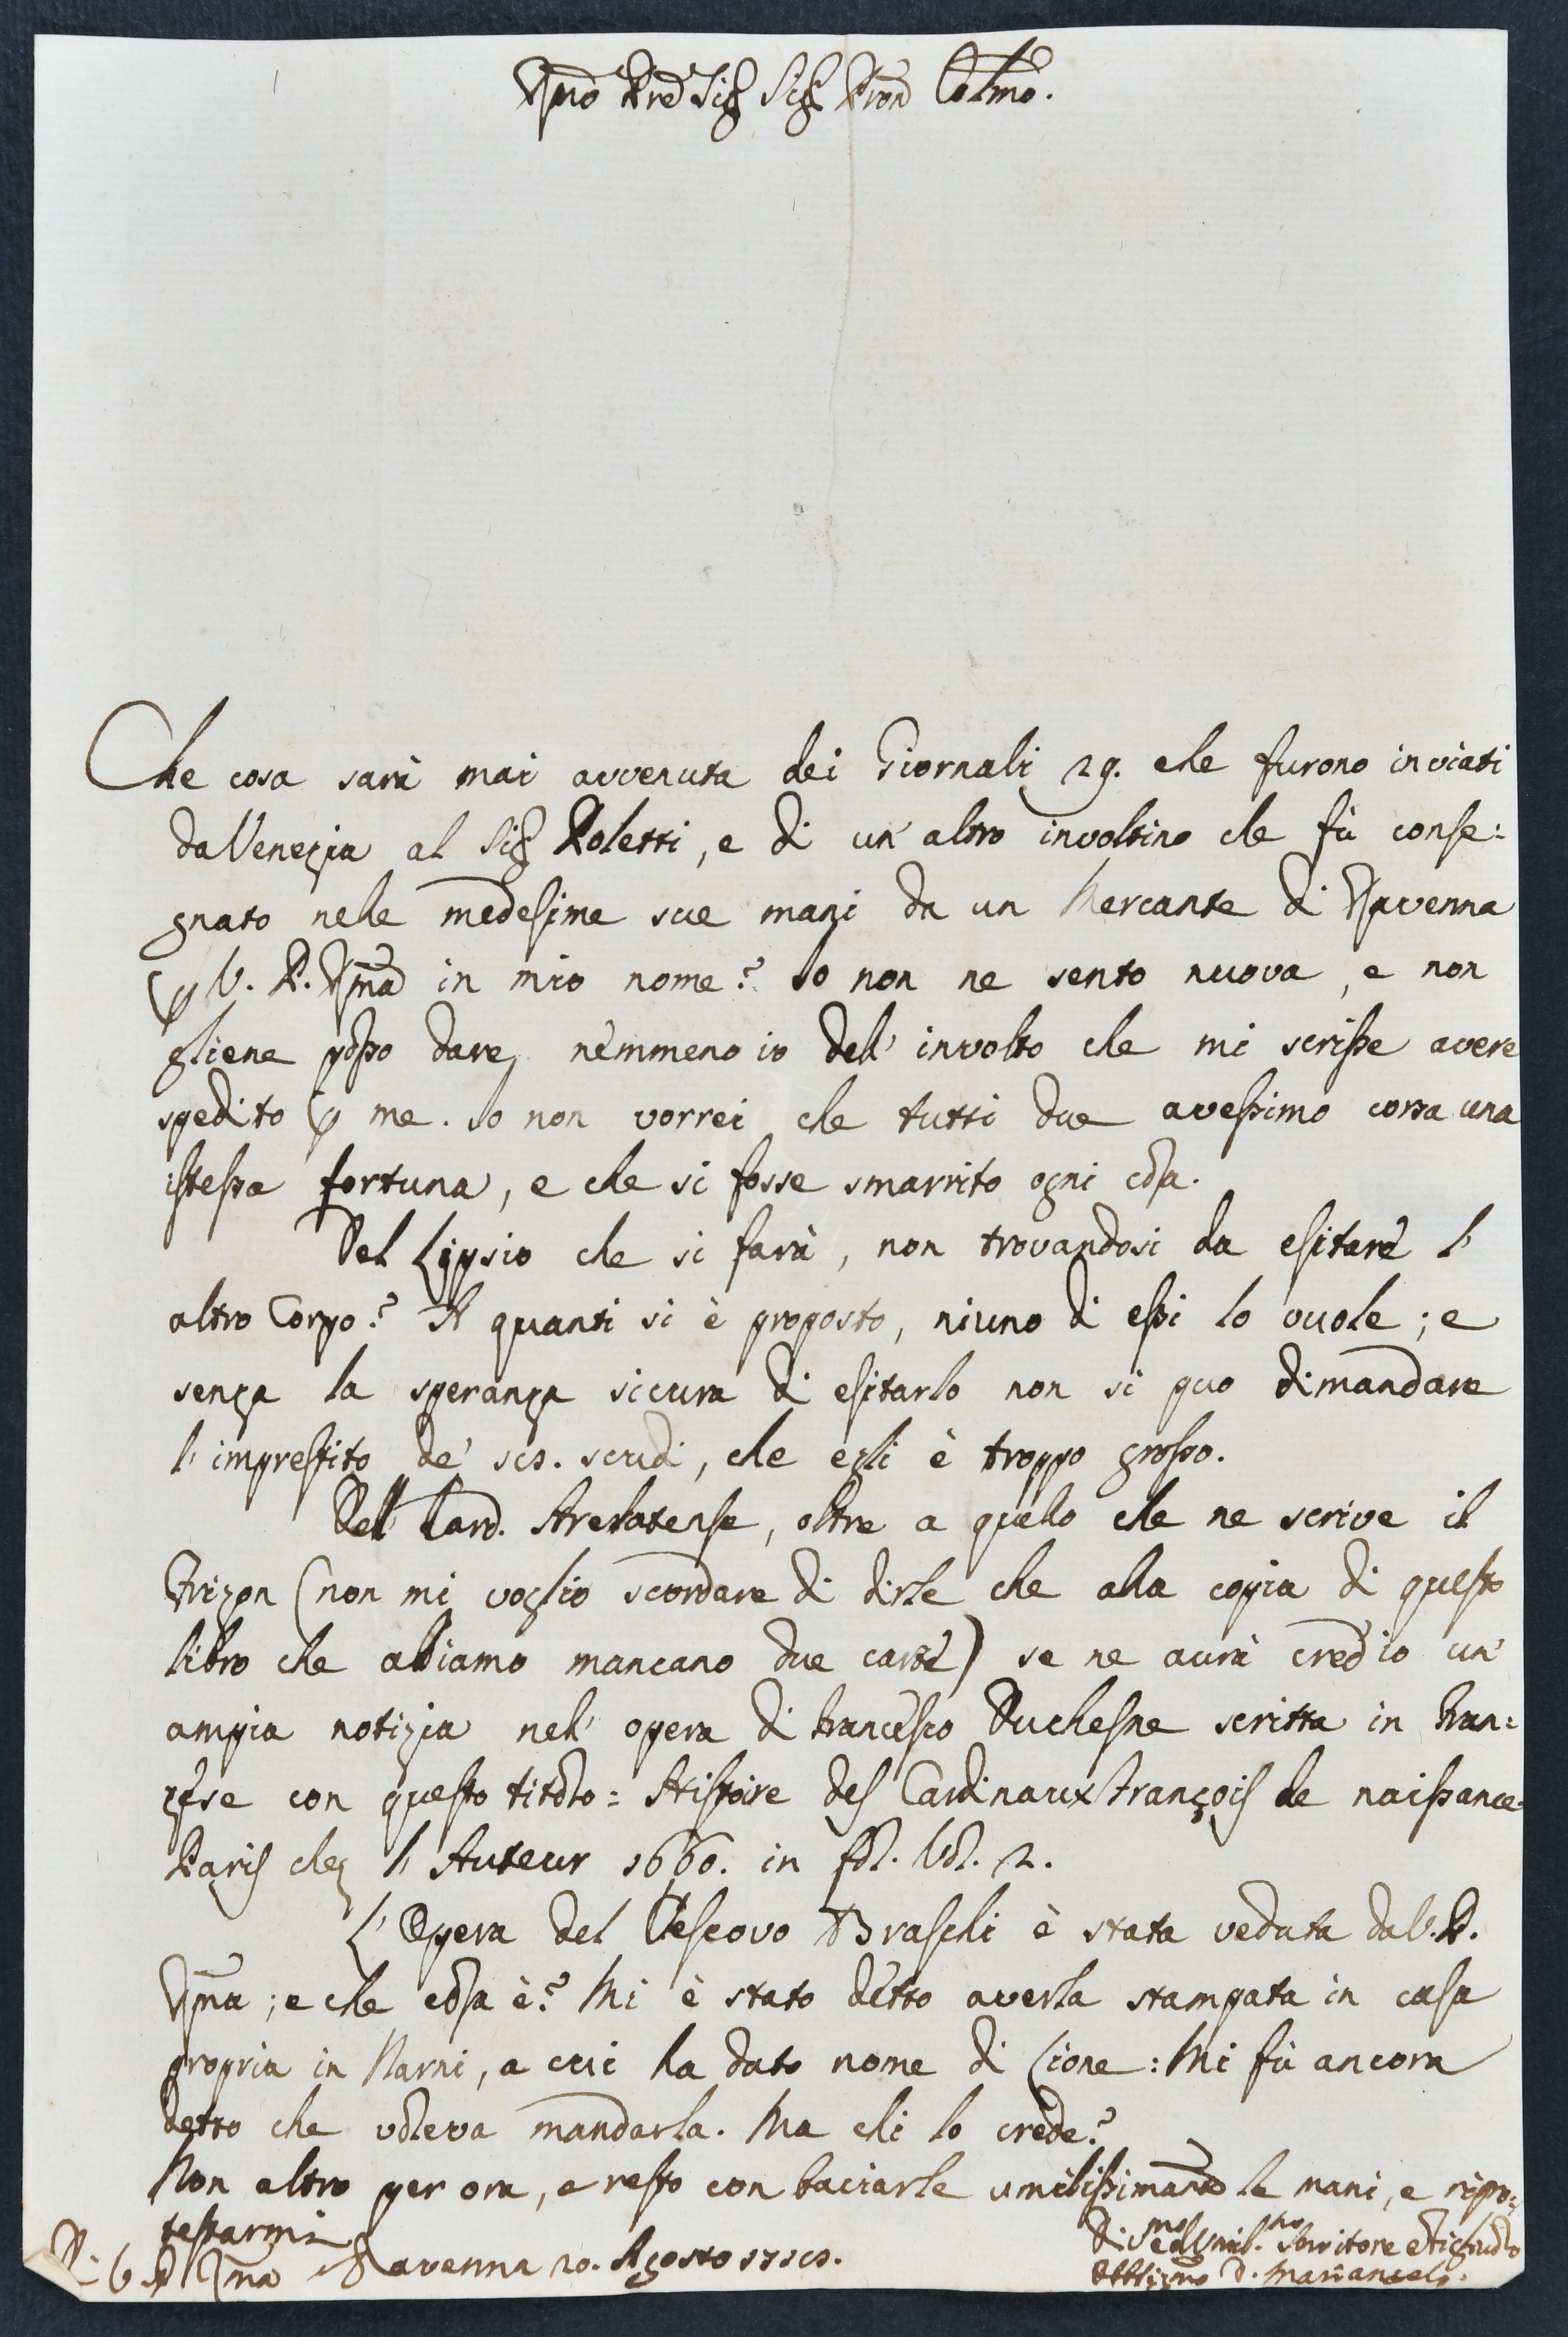 Rmo Pre Sig Sig Pron Colmo.
Che cosa sarà mai avvenuta dei Giornali 29. che furono inviati
da Venezia al Sig Poletti, e di un' altro involtino che fù conse:
gnato nelle medesime sue mani da un Mercante di Ravenna
p V. P. Rma in mio nome? Io non ne sento nuova, e non
gliene posso dare nemmeno io dell' involto che mi scrisse avere
spedito p me. Io non vorrei che tutti due avessimo corsa una
istessa fortuna, e che si fosse smarrito ogni cosa.
Del Lipsio che si farà, non trovandosi da esitare l'
altro Corpo? A quanti si è proposto, niuno di essi lo vuole; e
senza la speranza sicura di esitarlo non si puo dimandare
l' imprestito de' scudi, che egli è troppo grosso.
Dell' Card. Arelatense, oltre a quello che ne scrive il
Frizon (non mi voglio scordare di dirle che alla copia di questo
libro che abbiamo mancano due carte) se ne avrà cred' io un'
ampia notizia nell' opera di Francesco Duchesne scritta in Fran:
zese con questo titolo = Histoire des Cardinaux François de naissance =
Paris chez l' Auteur 1660. in fol. Vol. 2.
L' Opera del Vescovo Braschi è stata veduta da V. P.
Rma; e che cosa è? Mi è stato detto averla stampata in casa
propria in Narni, a cui ha dato nome di : Mi fù ancora
detto che voleva mandarla. Ma chi lo crede?
Non altro per ora, e resto con baciarle umilissimamte le mani, e ripro:
testarmi
Di V. P. Rma Ravenna 20. Agosto
Servitore
Obbligmo D. Mariangelo.